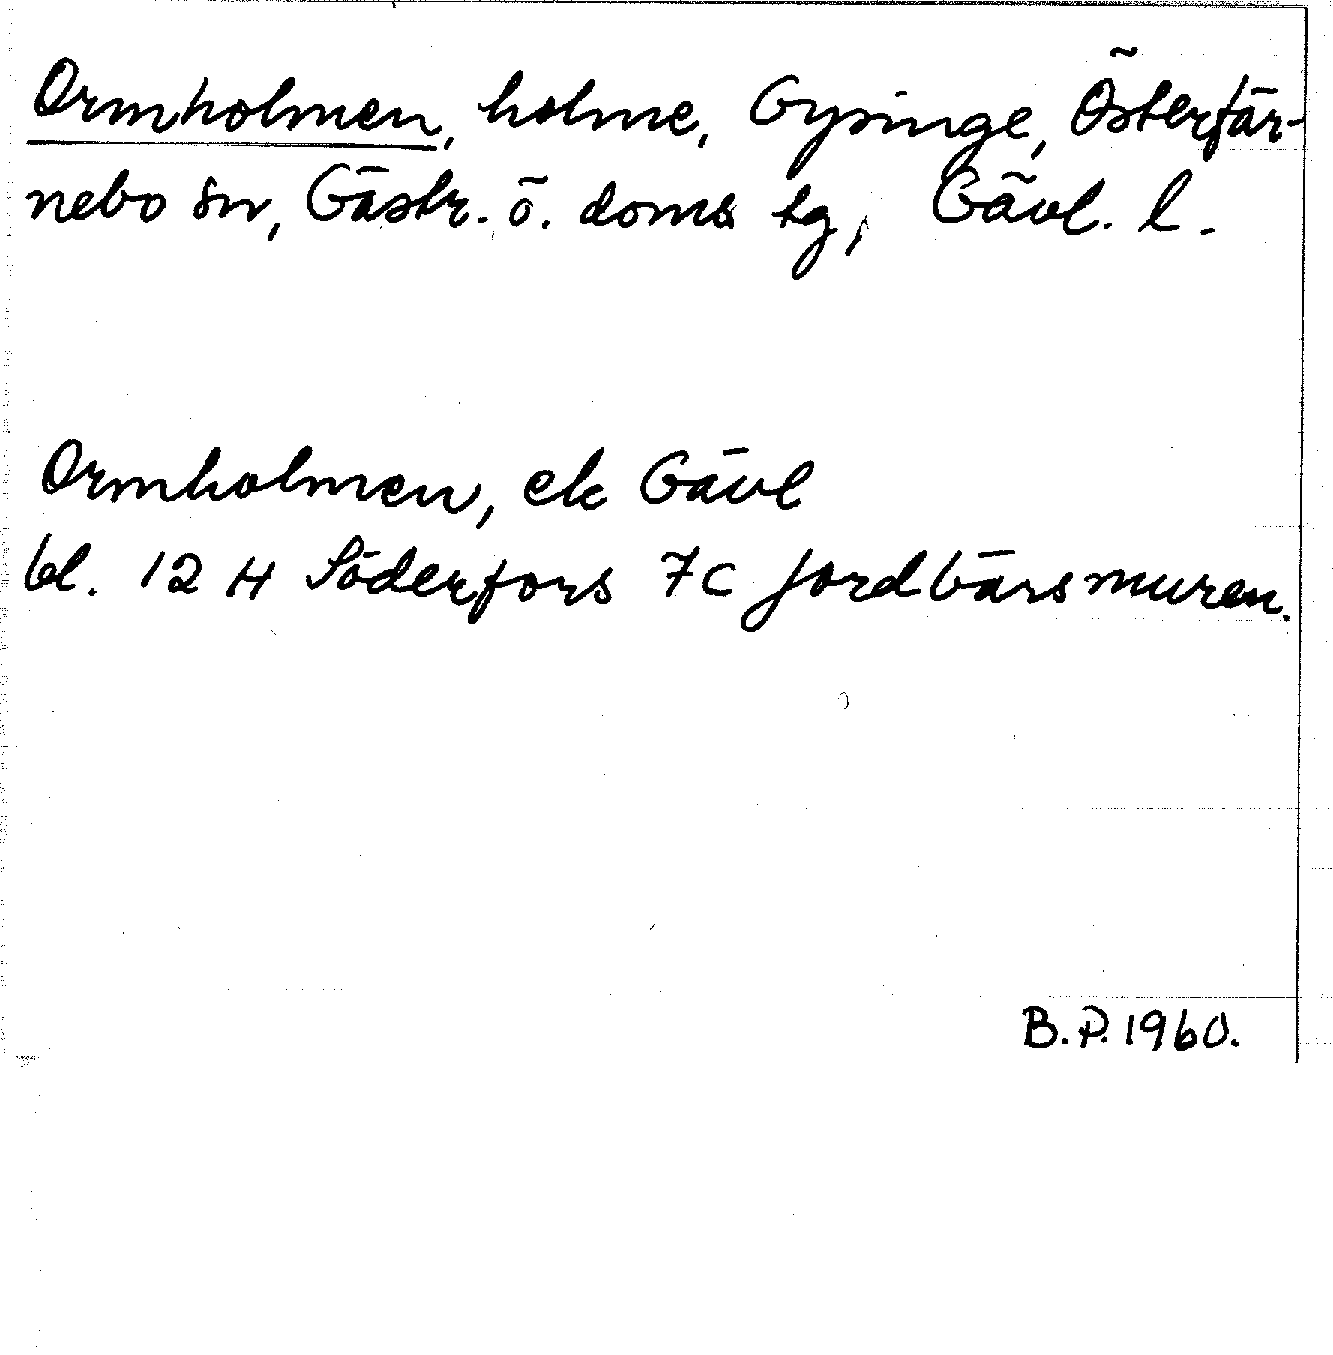 Ormholmen, holme, Gysinge, Österfär-
nebo sn, Gästr. ö. doms tg, Gävl. l.
Ormholmen, ek Gävl
bl. 12 H Söderfors 7c Jordbärsmuren.
B.P. 1960.